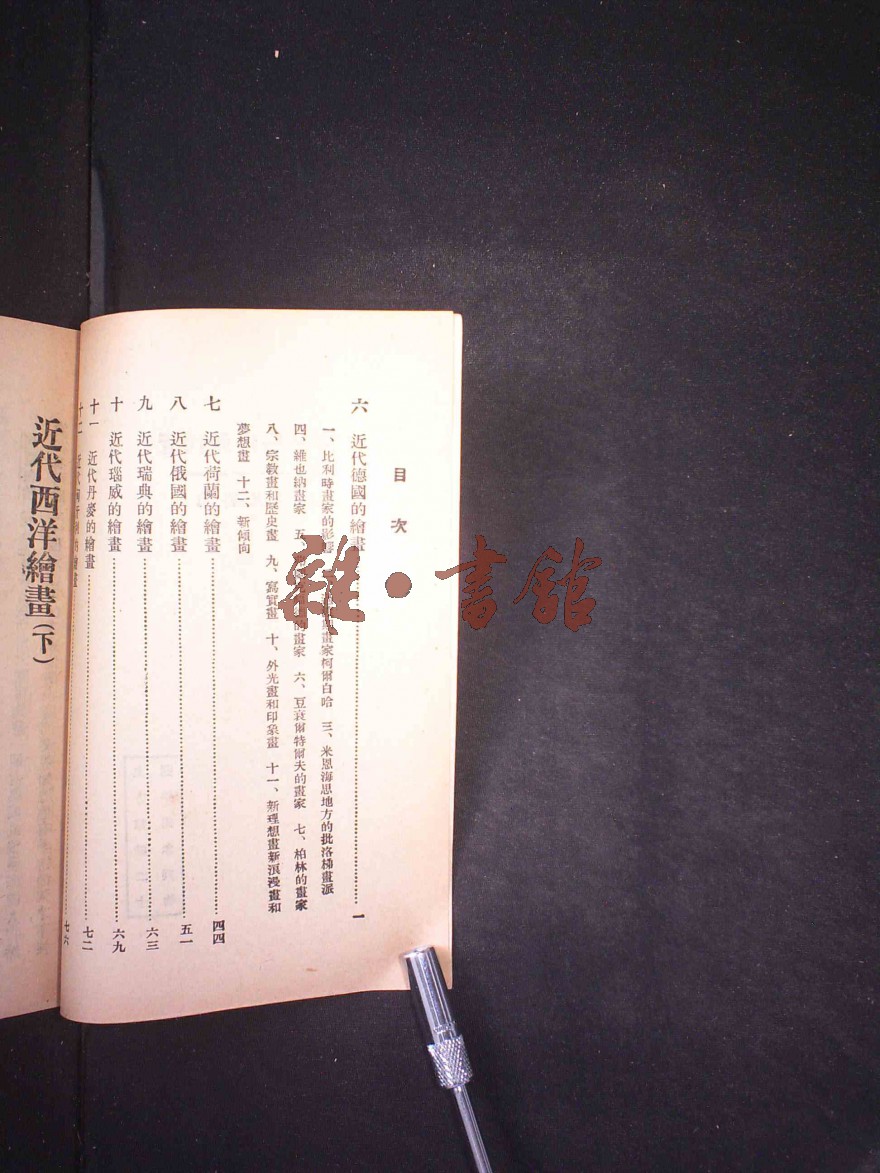 目次
六 近代德國的繪畫……一
一、比利時畫家的影響 畫家柯爾白哈 三、米恩海恩地方的批洛梯畫派
四、維也納畫家 五 的畫家 六、豆衰爾特爾夫的畫家 七、柏林的畫家
八、宗教畫和歷史畫 九、寫實畫 十、外光畫和印象畫 十一、新理想畫新浪漫畫和
夢想畫 十二、新傾向
七 近代荷蘭的繪畫……四四
八 近代俄國的繪畫……五一
九 近代瑞典的繪畫……六三
十 近代瑙威的繪畫……六九
十一 近代丹麥的繪畫……七二
十二 近代 的繪畫……七六
近代西洋繪畫(下)
雜·書館